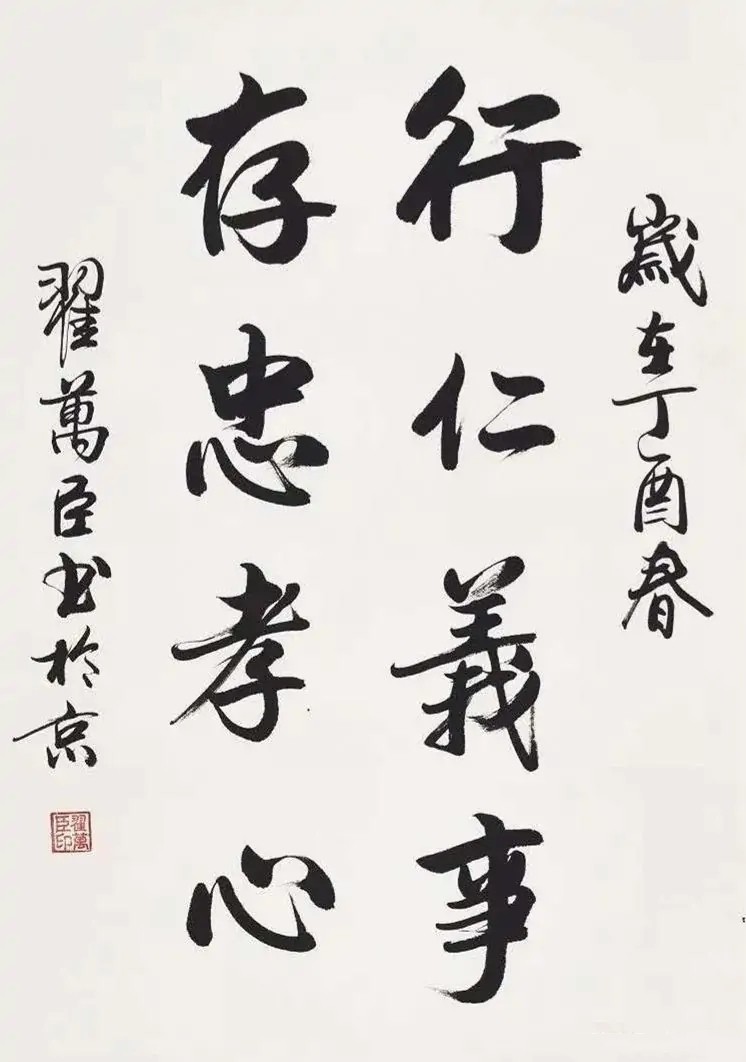 歲在丁酉春
行仁義事
存忠孝心
翟萬臣书於京
翟萬臣印